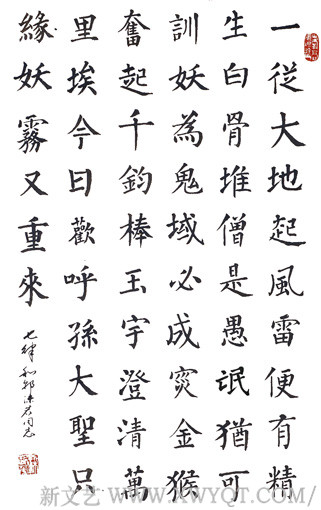 一從大地起風雷便有精
生白骨堆僧是愚氓猶可
訓妖為鬼域必成灾金猴
奮起千鈞棒玉宇澄清萬
里埃今日歡呼孫大聖只
緣妖霧又重來
七律和郭沫若同志
新文艺 WWW.XWYQT.COM/